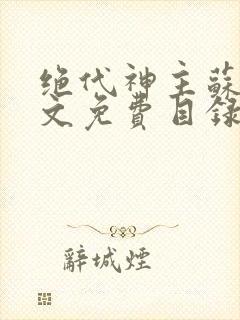 绝代神主蘇
文免費目録
辭城煙